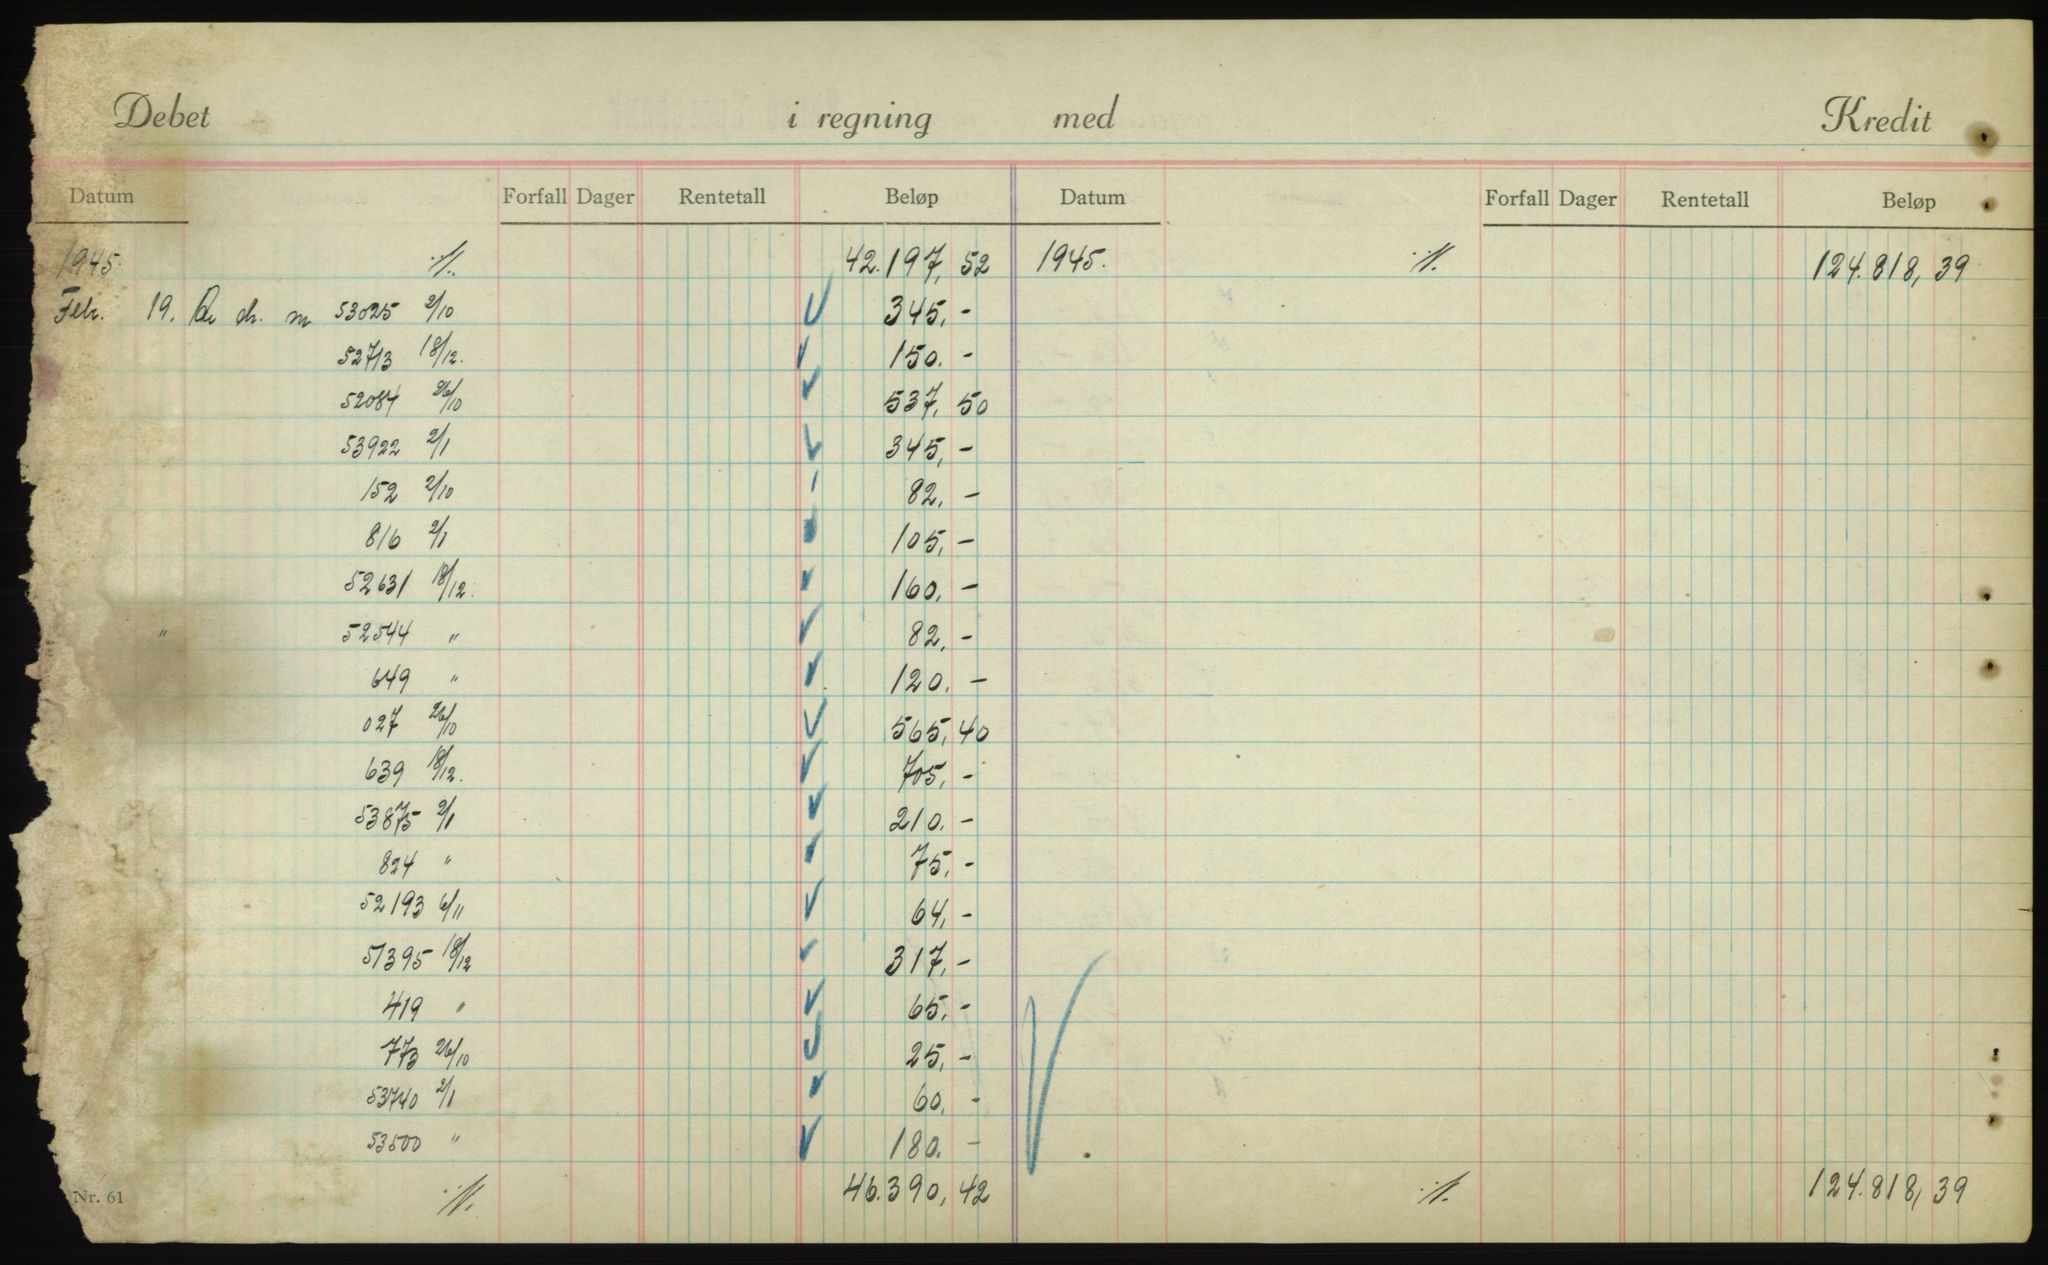 Debet i regning med Kredit
Datum Forfall Dager Rentetall Beløp Datum Forfall Dager Rentetall Beløp
1945. ·/. 42.197,52 1945. ·/. 124.818,39
Febr. 19. 53025 2/10 345,-
52713 18/12. 150.-
52084 26/10 537,50
53922 2/1 345,-
152 2/10 82,-
816 2/1 105,-
52631 18/12. 160,-
" 52544 " 82,-
649 " 120.-
027 26/10 565,40
639 18/12. 705,-
53875 2/1 210.-
824 " 75,-
52193 6/11 64,-
51395 18/12 317,-
419 " 65,-
773 26/10 25,-
53740 2/1 60,-
53500 " 180.-
Nr. 61 ·/. 46.390,42 ·/. 124.818,39